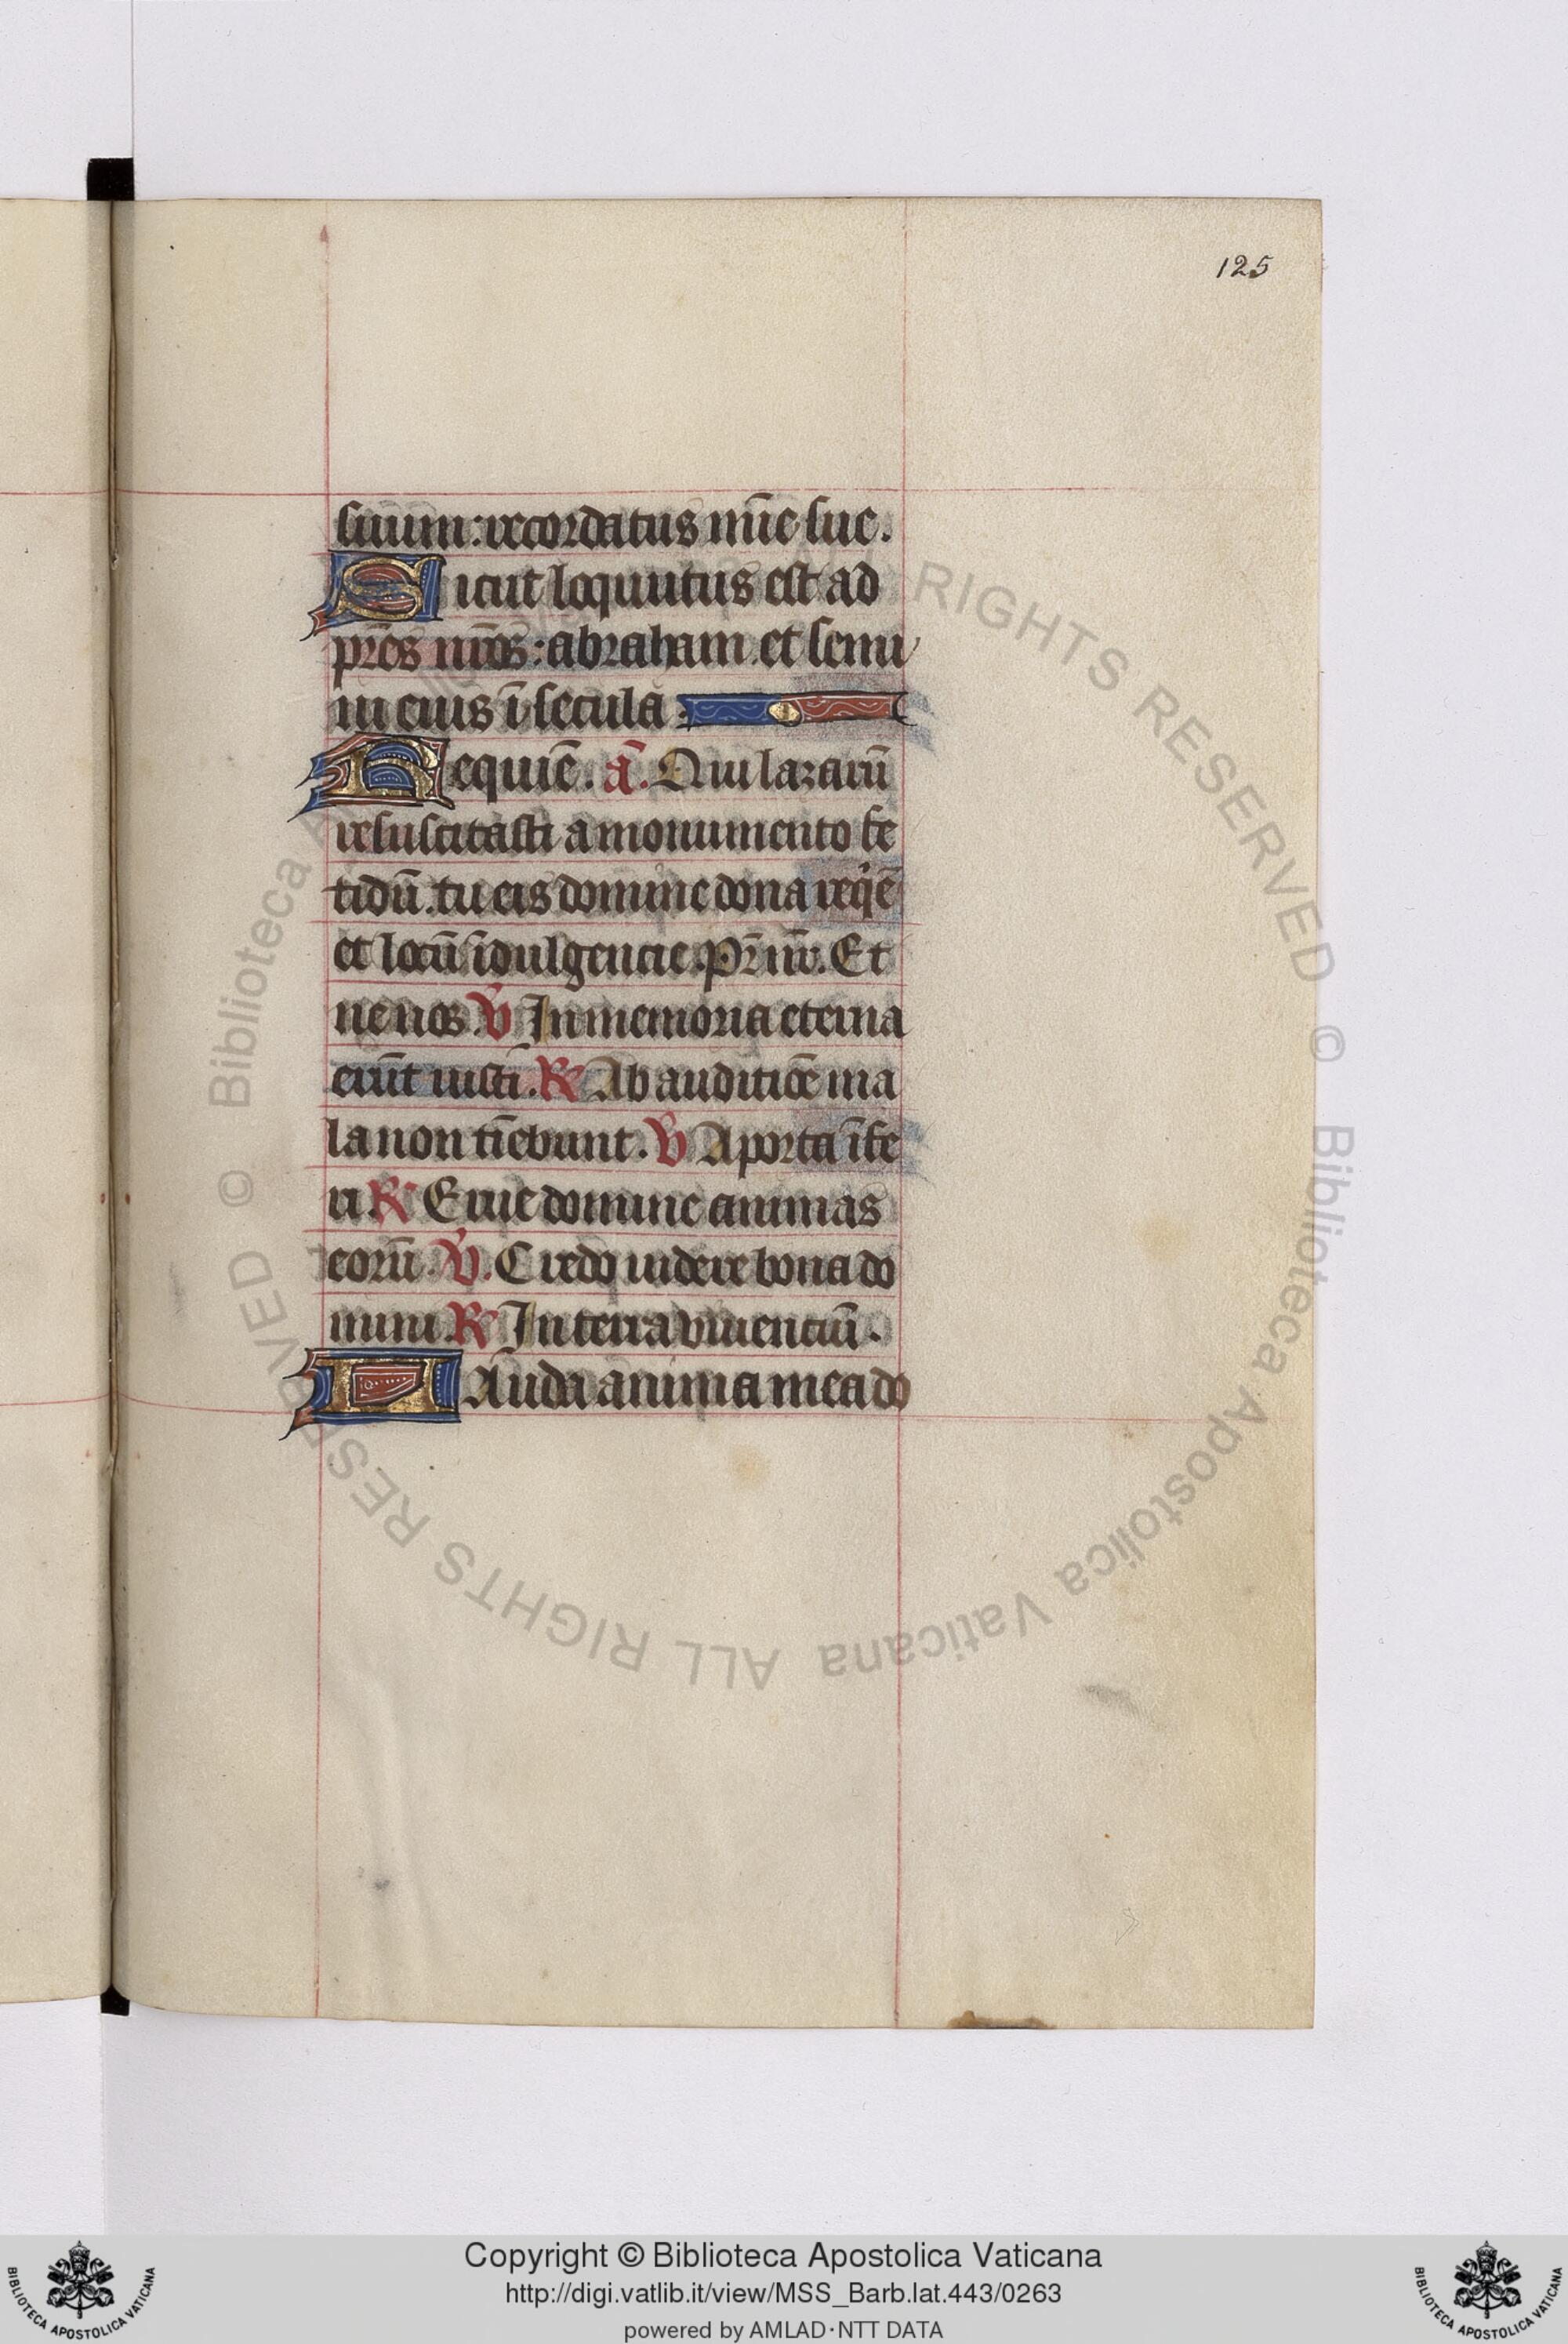 125
suum: recordatus mīe sue.
Sicut loquutus est ad
pr̄es nr̄os: abraham et semi
ni eius ī secula:
Requiē. ā. Qui lazarū
resuscitasti a monumento fe
tidū. tu eis domine dona reqͥē
et locū īdulgencie. Pr̄ nr̄. Et
ne nos. V̄ In memoria eterna
erūt iusti. R̄ Ab auditiōe ma
la non tīebunt. V̄ A porta īfe
ri R̄ Erue domine animas
eorū. V̄. Credo uidere bona do
mini. R̄ In terra viuenciū.
Lauda anima mea do
© Biblioteca Apostolica Vaticana ALL RIGHTS RESERVED © Biblioteca Apostolica Vaticana ALL RIGHTS RESERVED
Copyright © Biblioteca Apostolica Vaticana
http://digi.vatlib.it/view/MSS_Barb.lat.443/0263
powered by AMLAD·NTT DATA
BIBLIOTECA APOSTOLICA VATICANA
BIBLIOTECA APOSTOLICA VATICANA